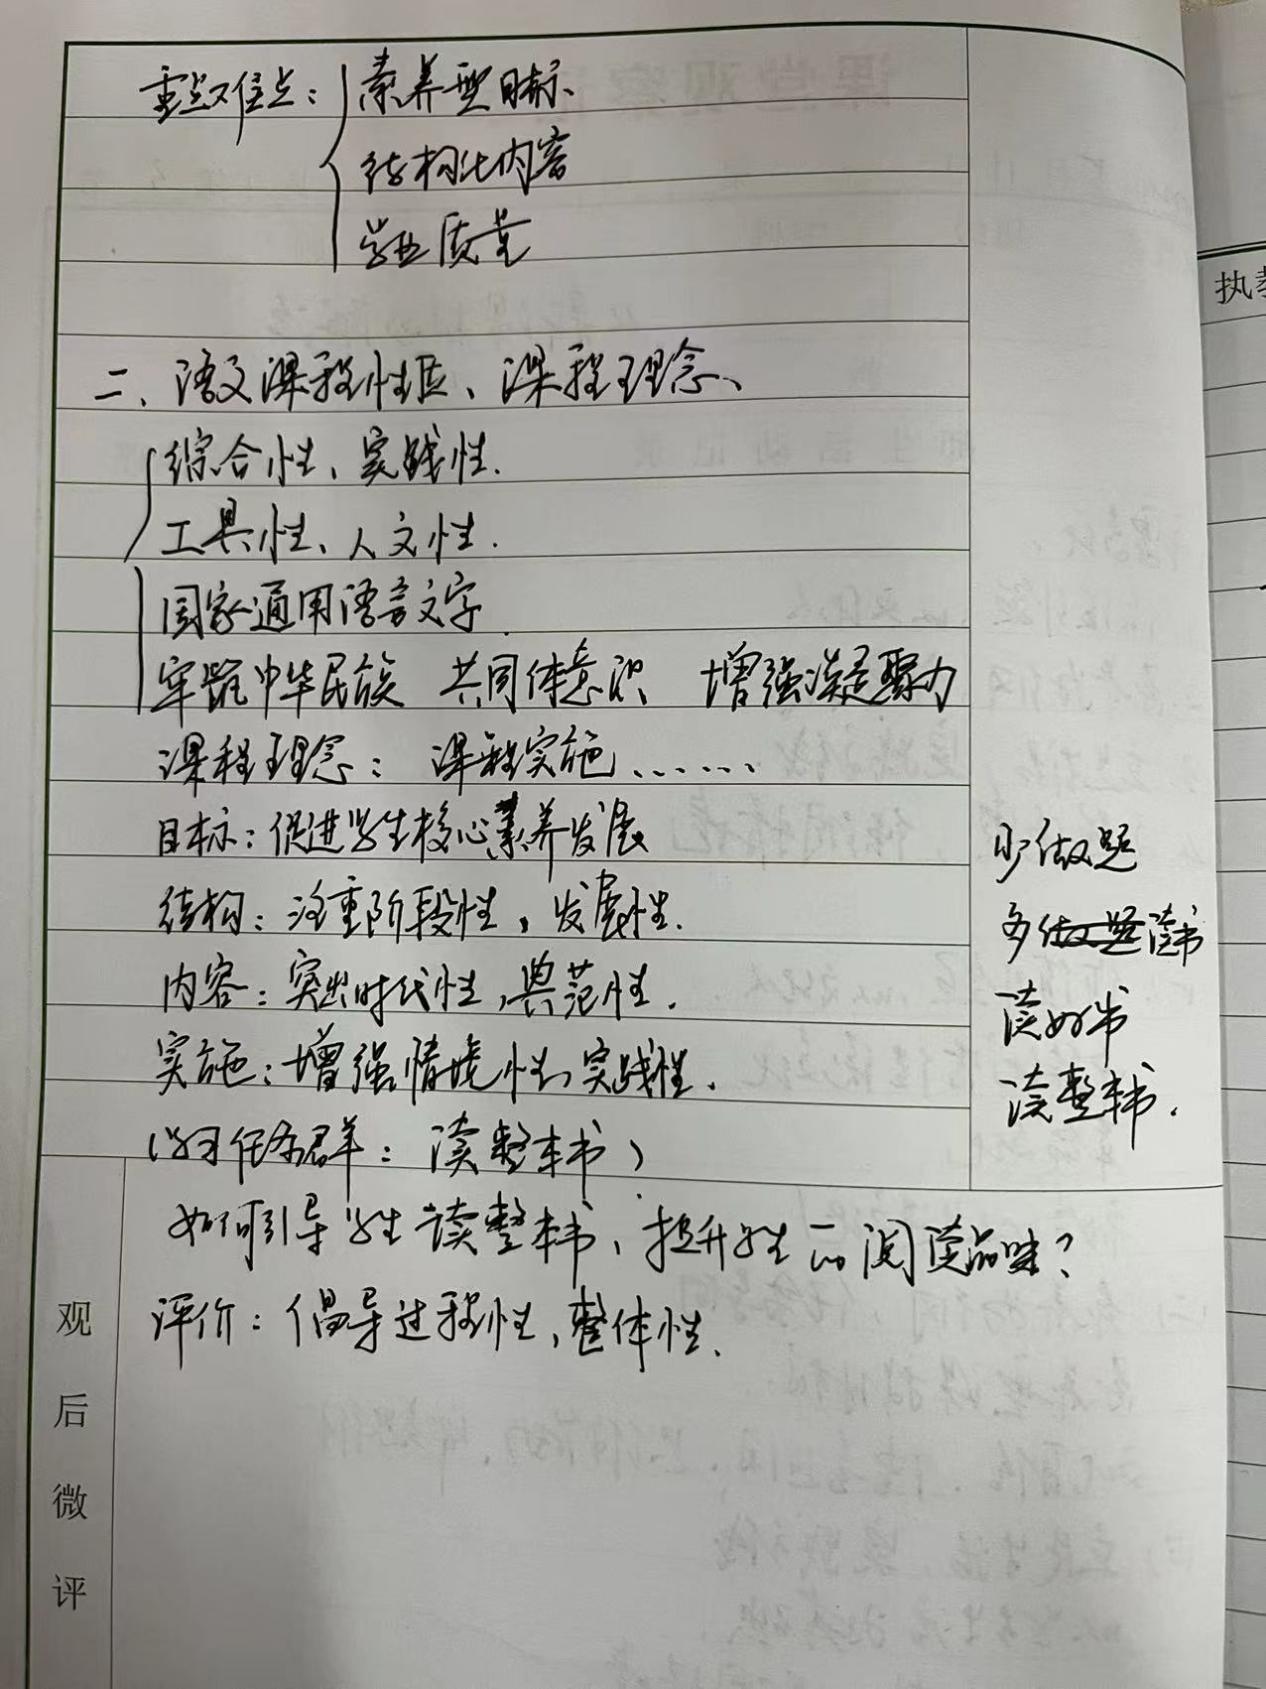 重点难点：素养型目标、
结构化内容
学业质量
二、语文课程性质、课程理念、
综合性、实践性.
工具性、人文性.
国家通用语言文字.
牢铸中华民族 共同体意识 增强凝聚力
课程理念：课程实施……
目标：促进学生核心素养发展
结构：注重阶段性，发展性.
内容：突出时代性，典范性.
实施：增强情境性，实践性.
（学习任务群：读整本书）
如何引导学生读整本书，提升学生 阅读品味？
评价：倡导过程性，整体性.
少做题
多做题读书
读好书
读整本书.
观后微评
执教